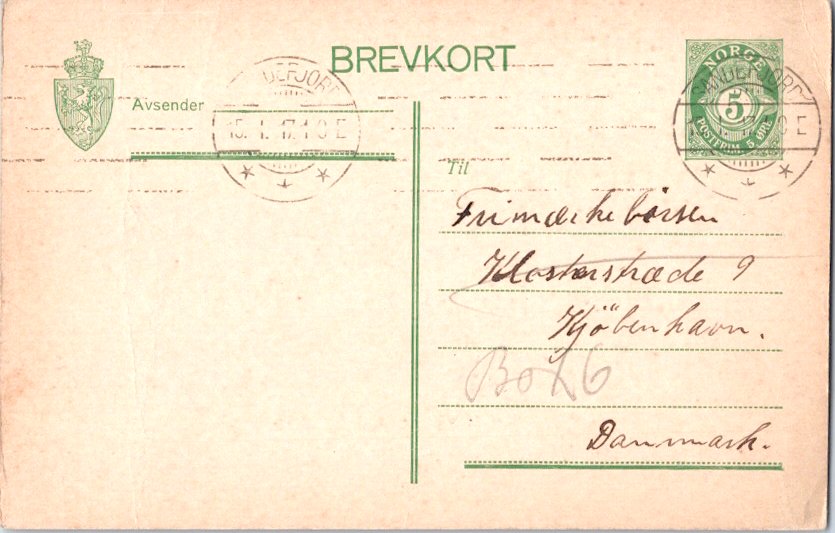 BREVKORT
Avsender
SANDEFJORD
15. 1. 17. 1 0 E
NORGE
5
POSTFRIM. 5 ØRE
SANDEFJORD
1. 17. 1 0 E
Til
Frimærkebörsen
Klosterstræde 9
Kjöbenhavn.
Box 6
Danmark.